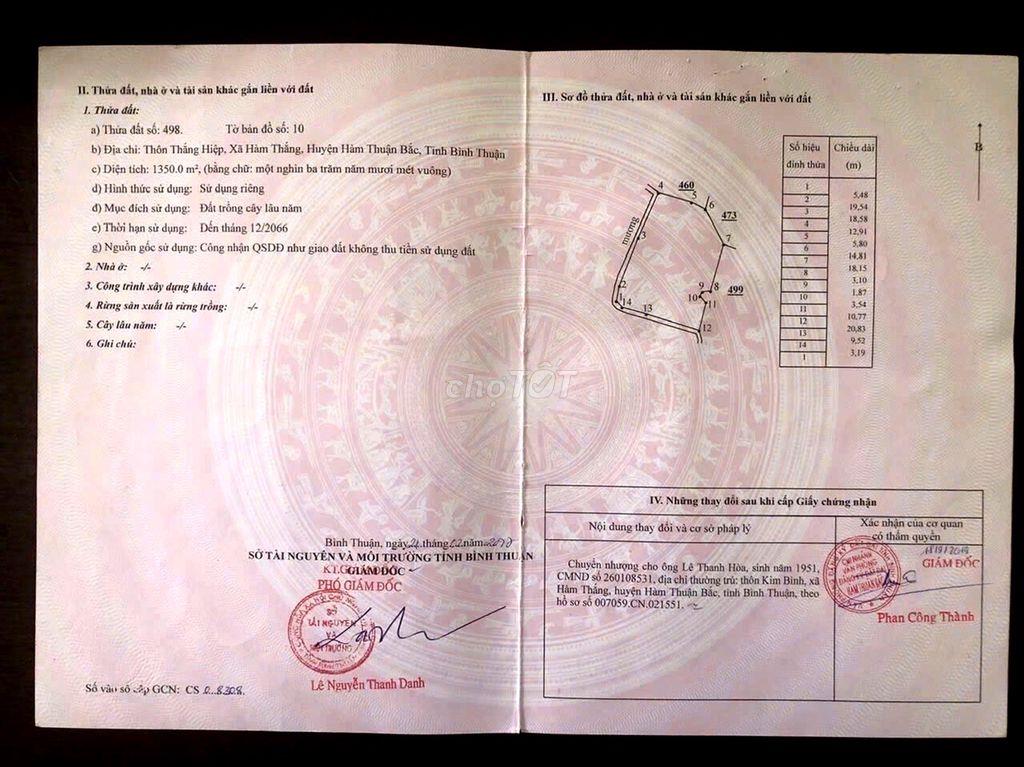 II. Thửa đất, nhà ở và tài sản khác gắn liền với đất
1. Thửa đất:
a) Thửa đất số: 498. Tờ bản đồ số: 10
b) Địa chỉ: Thôn Thắng Hiệp, Xã Hàm Thắng, Huyện Hàm Thuận Bắc, Tỉnh Bình Thuận
c) Diện tích: 1350.0 m², (bằng chữ: một nghìn ba trăm năm mươi mét vuông)
d) Hình thức sử dụng: Sử dụng riêng
đ) Mục đích sử dụng: Đất trồng cây lâu năm
e) Thời hạn sử dụng: Đến tháng 12/2066
g) Nguồn gốc sử dụng: Công nhận QSDĐ như giao đất không thu tiền sử dụng đất
2. Nhà ở: -/-
3. Công trình xây dựng khác: -/-
4. Rừng sản xuất là rừng trồng: -/-
5. Cây lâu năm: -/-
6. Ghi chú:
Bình Thuận, ngày tháng
SỞ TÀI NGUYÊN VÀ MÔI TRƯỜNG TỈNH BÌNH THUẬN
KT.GIÁM ĐỐC
PHÓ GIÁM ĐỐC
SỞ
TÀI NGUYÊN
VÀ
MÔI TRƯỜNG
Lê Nguyễn Thanh Danh
Số vào sổ cấp GCN: CS
choTỐT
III. Sơ đồ thửa đất, nhà ở và tài sản khác gắn liền với đất
B
4
460
5
6
473
7
mương
3
2
1
14
13
9
8
499
10
11
12
Số hiệu đỉnh thửa
Chiều dài (m)
1
5,48
2
19,54
3
18,58
4
12,91
5
5,80
6
14,81
7
18,15
8
3,10
9
1,87
10
3,54
11
10,77
12
20,83
13
9,52
14
3,19
1
IV. Những thay đổi sau khi cấp Giấy chứng nhận
Nội dung thay đổi và cơ sở pháp lý
Xác nhận của cơ quan
có thẩm quyền
Chuyển nhượng cho ông Lê Thanh Hòa, sinh năm 1951,
CMND số 260108531, địa chỉ thường trú: thôn Kim Bình, xã
Hàm Thắng, huyện Hàm Thuận Bắc, tỉnh Bình Thuận, theo
hồ sơ số 007059.CN.021551.
GIÁM ĐỐC
CHI NHÁNH
VĂN PHÒNG
ĐĂNG KÝ ĐẤT ĐAI
HÀM THUẬN BẮC
Phan Công Thành